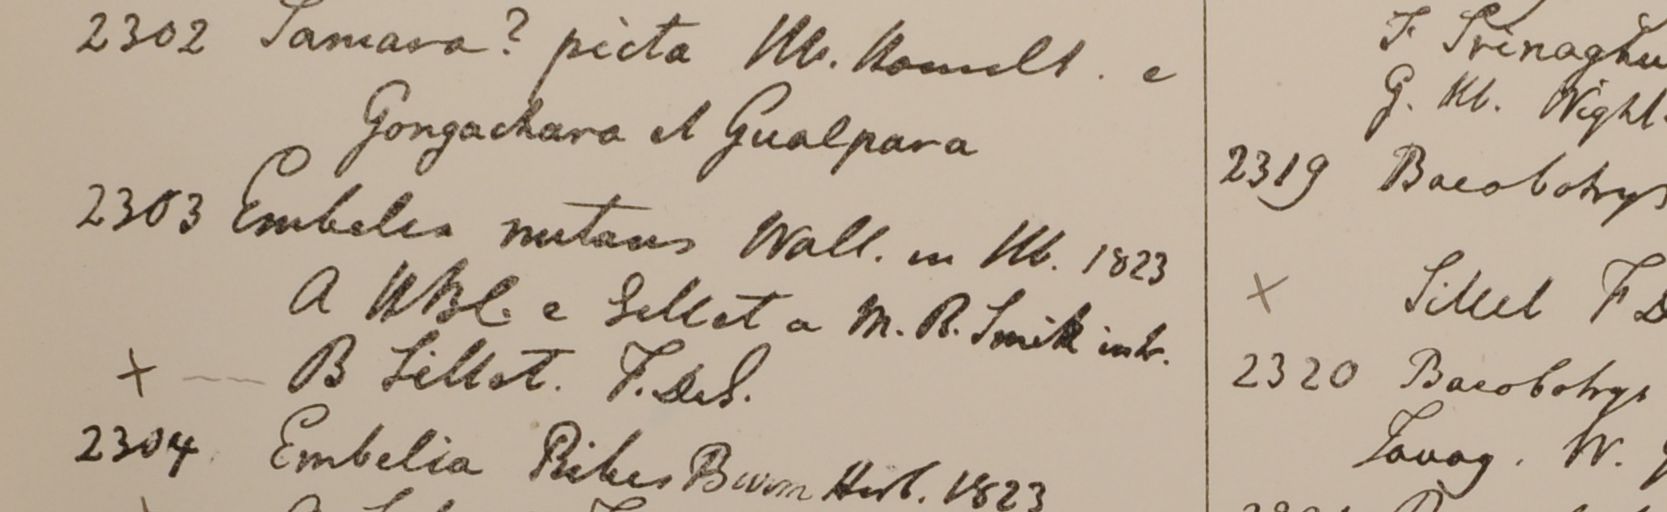 2302 Samara? picta Hb. Hamilt. e
Gongachara et Gualpara
2303 Embelia nutans Wall. in Hb. 1823
A HBC. e Sillet a M. R. Smith
× B Sillet. F. De S.
2304 Embelia Ribes Burm Herb. 1823
F. Srinaghu
G. Hb. Wight.
2319 Baeobotrys
× Sillet F D
2320 Baeobotrys
Tavoy. W.